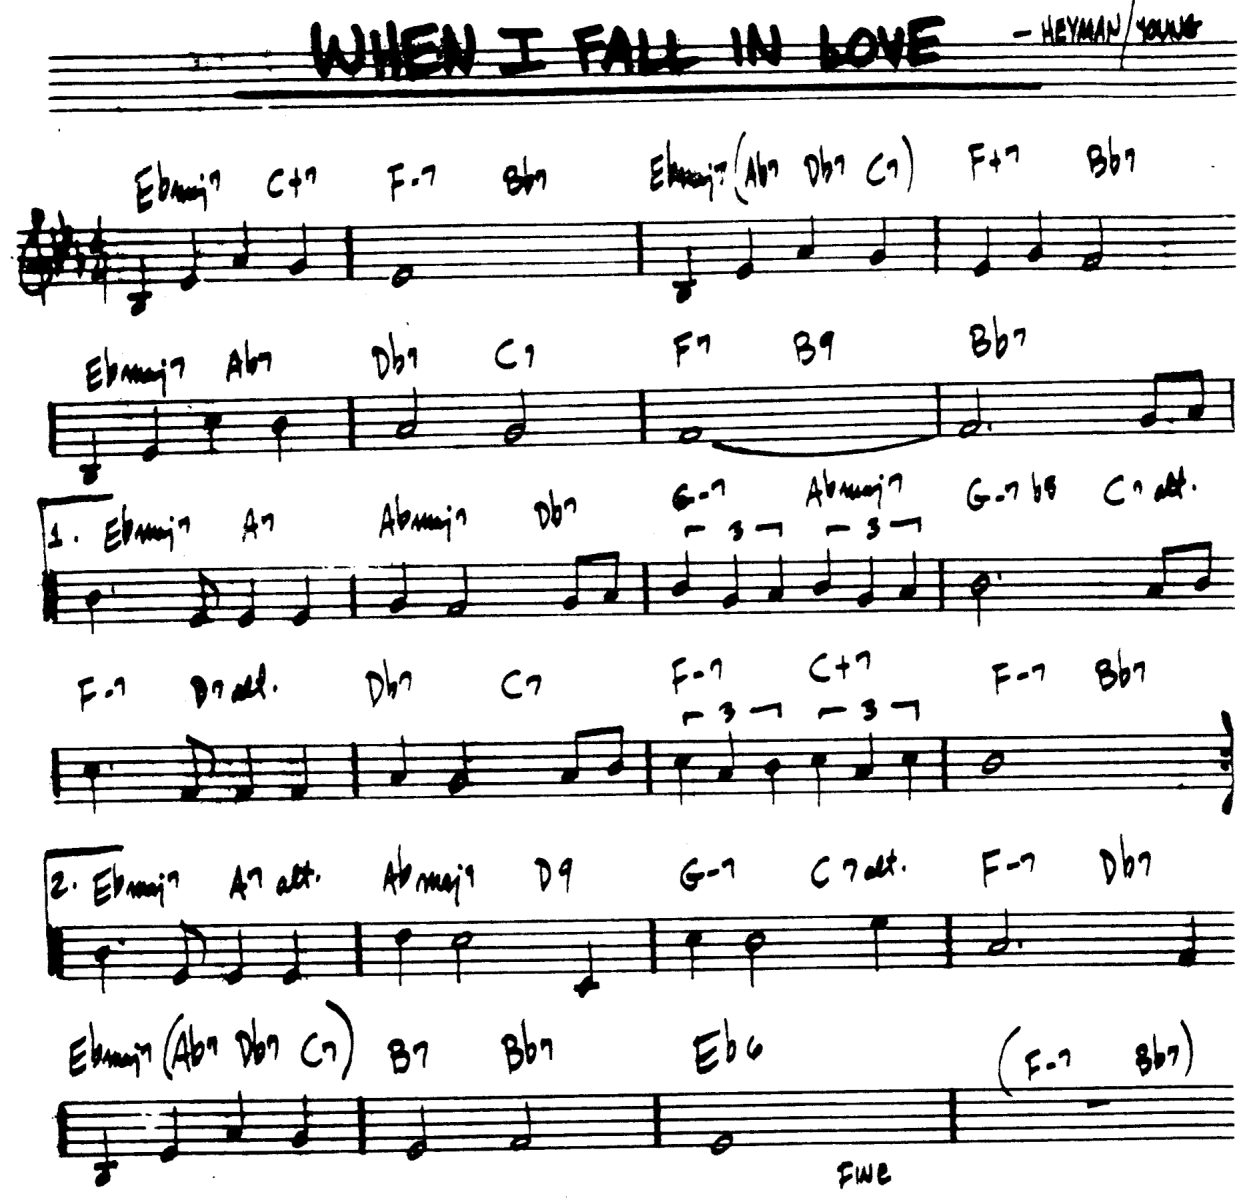 WHEN I FALL IN LOVE – HEYMAN/YOUNG
Ebmaj7 C+7 F-7 Bb7 Ebmaj7 (Ab7 Db7 C7) F+7 Bb7
Ebmaj7 Ab7 Db7 C7 F7 B9 Bb7
1. Ebmaj7 A7 Abmaj7 Db7 G-7 Abmaj7 G-7 b5 C7 alt.
3 3
F-7 D7 alt. Db7 C7 F-7 C+7 F-7 Bb7
3 3
2. Ebmaj7 A7 alt. Abmaj7 D9 G-7 C7 alt. F-7 Db7
Ebmaj7 (Ab7 Db7 C7) B7 Bb7 Eb6 (F-7 Bb7)
FINE